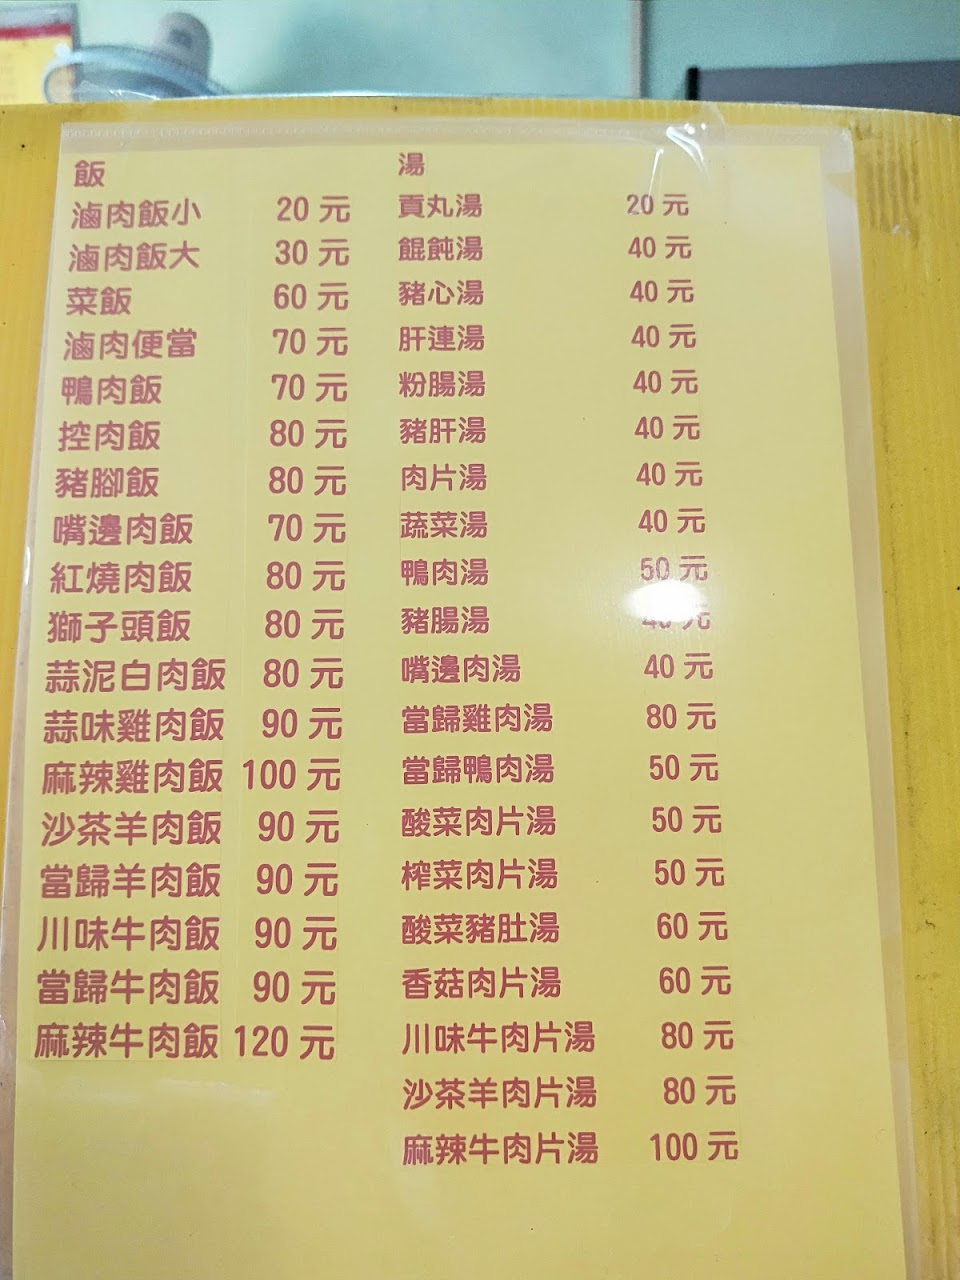 飯
滷肉飯小 20 元
滷肉飯大 30 元
菜飯 60 元
滷肉便當 70 元
鴨肉飯 70 元
控肉飯 80 元
豬腳飯 80 元
嘴邊肉飯 70 元
紅燒肉飯 80 元
獅子頭飯 80 元
蒜泥白肉飯 80 元
蒜味雞肉飯 90 元
麻辣雞肉飯 100 元
沙茶羊肉飯 90 元
當歸羊肉飯 90 元
川味牛肉飯 90 元
當歸牛肉飯 90 元
麻辣牛肉飯 120 元
湯
貢丸湯 20 元
餛飩湯 40 元
豬心湯 40 元
肝連湯 40 元
粉腸湯 40 元
豬肝湯 40 元
肉片湯 40 元
蔬菜湯 40 元
鴨肉湯 50 元
豬腸湯 40 元
嘴邊肉湯 40 元
當歸雞肉湯 80 元
當歸鴨肉湯 50 元
酸菜肉片湯 50 元
榨菜肉片湯 50 元
酸菜豬肚湯 60 元
香菇肉片湯 60 元
川味牛肉片湯 80 元
沙茶羊肉片湯 80 元
麻辣牛肉片湯 100 元